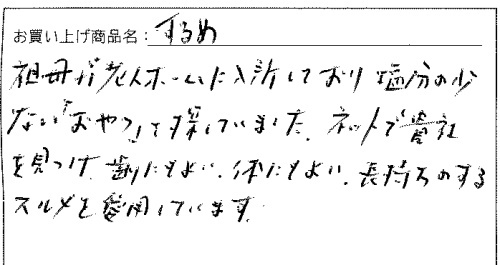 お買い上げ商品名：するめ
祖母が老人ホームに入所しており塩分の少
ない「おやつ」を探していました。ネットで貴社
を見つけ、歯にもよい、体にもよい、長持ちのする
スルメを愛用しています。